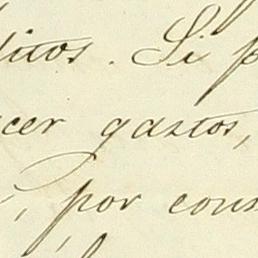 litos. Si p
cer gastos,
, por cons